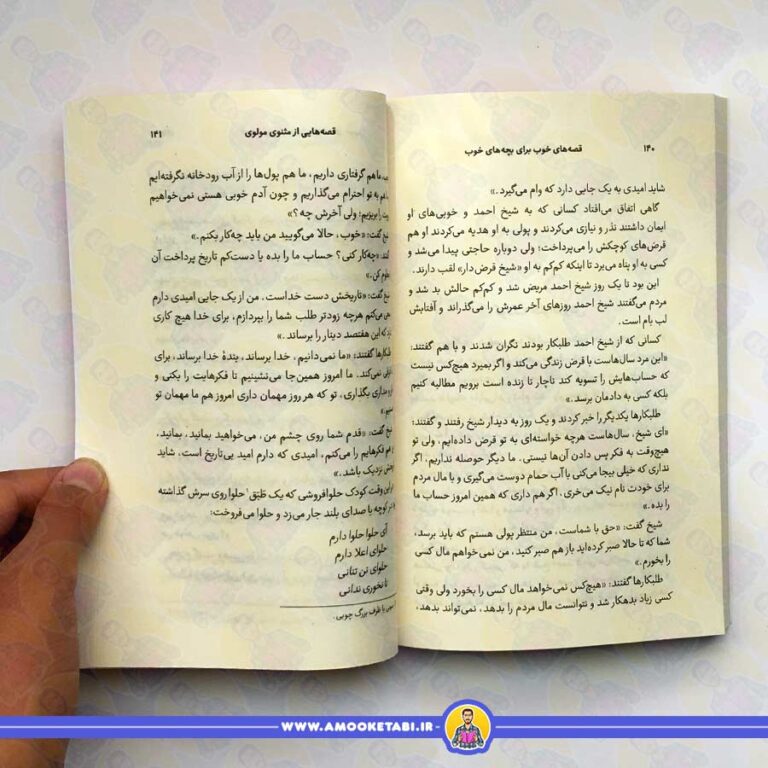 ۱۴۰ قصه‌های خوب برای بچه‌های خوب
شاید امیدی به یک جایی دارد که وام می‌گیرد.»
گاهی اتفاق می‌افتاد کسانی که به شیخ احمد و خوبی‌های او
ایمان داشتند نذر و نیازی می‌کردند و پولی به او هدیه می‌کردند او هم
قرض‌های کوچکش را می‌پرداخت؛ ولی دوباره حاجتی پیدا می‌شد و
کسی به او پناه می‌برد تا اینکه کم‌کم به او «شیخ قرض‌دار» لقب دارند.
این بود تا یک روز شیخ احمد مریض شد و کم‌کم حالش بد شد و
مردم می‌گفتند شیخ احمد روزهای آخر عمرش را می‌گذراند و آفتابش
لب بام است.
کسانی که از شیخ احمد طلبکار بودند نگران شدند و با هم گفتند:
«این مرد سال‌هاست با قرض زندگی می‌کند و اگر بمیرد هیچ‌کس نیست
که حساب‌هایش را تسویه کند ناچار تا زنده است برویم مطالبه کنیم
بلکه کسی به دادمان برسد.»
طلبکارها یکدیگر را خبر کردند و یک روز به دیدار شیخ رفتند و گفتند:
«ای شیخ، سال‌هاست هرچه خواسته‌ای به تو قرض داده‌ایم، ولی تو
هیچ‌وقت به فکر پس دادن آن‌ها نیستی. ما دیگر حوصله نداریم، اگر
نداری که خیلی بیجا می‌کنی با آب حمام دوست می‌گیری و با مال مردم
برای خودت نام نیک می‌خری، اگر هم داری که همین امروز حساب ما
را بده.»
شیخ گفت: «حق با شماست، من منتظر پولی هستم که باید برسد،
شما که تا حالا صبر کرده‌اید باز هم صبر کنید، من نمی‌خواهم مال کسی
را بخورم.»
طلبکارها گفتند: «هیچ‌کس نمی‌خواهد مال کسی را بخورد ولی وقتی
کسی زیاد بدهکار شد و نتوانست مال مردم را بدهد، نمی‌تواند بدهد،
قصه‌هایی از مثنوی مولوی ۱۴۱
ما هم گرفتاری داریم، ما هم پول‌ها را از آب رودخانه نگرفته‌ایم
به تو احترام می‌گذاریم و چون آدم خوبی هستی نمی‌خواهیم
را بریزیم؛ ولی آخرش چه؟»
گفت: «خوب، حالا می‌گویید من باید چه‌کار بکنم.»
«چه‌کار کنی؟ حساب ما را بده یا دست‌کم تاریخ پرداخت آن
کن.»
گفت: «تاریخش دست خداست. من از یک جایی امیدی دارم
می‌کنم هرچه زودتر طلب شما را بپردازم، برای خدا هیچ کاری
که این هفتصد دینار را برساند.»
گفتند: «ما نمی‌دانیم، خدا برساند، بندهٔ خدا برساند، برای
نمی‌کند. ما امروز همین‌جا می‌نشینیم تا فکرهایت را بکنی و
بگذاری، تو که هر روز مهمان داری امروز هم ما مهمان تو
گفت: «قدم شما روی چشم من، می‌خواهید بمانید، بمانید،
فکرهایم را می‌کنم، امیدی که دارم امید بی‌تاریخ است، شاید
نزدیک باشد.»
این وقت کودک حلوافروشی که یک طَبَق¹ حلوا روی سرش گذاشته
کوچه با صدای بلند جار می‌زد و حلوا می‌فروخت:
آی حلوا حلوا دارم
حلوای اعلا دارم
حلوای تن تنانی
تا نخوری ندانی
یا ظرف بزرگ چوبی.
WWW.AMOOKETABI.IR